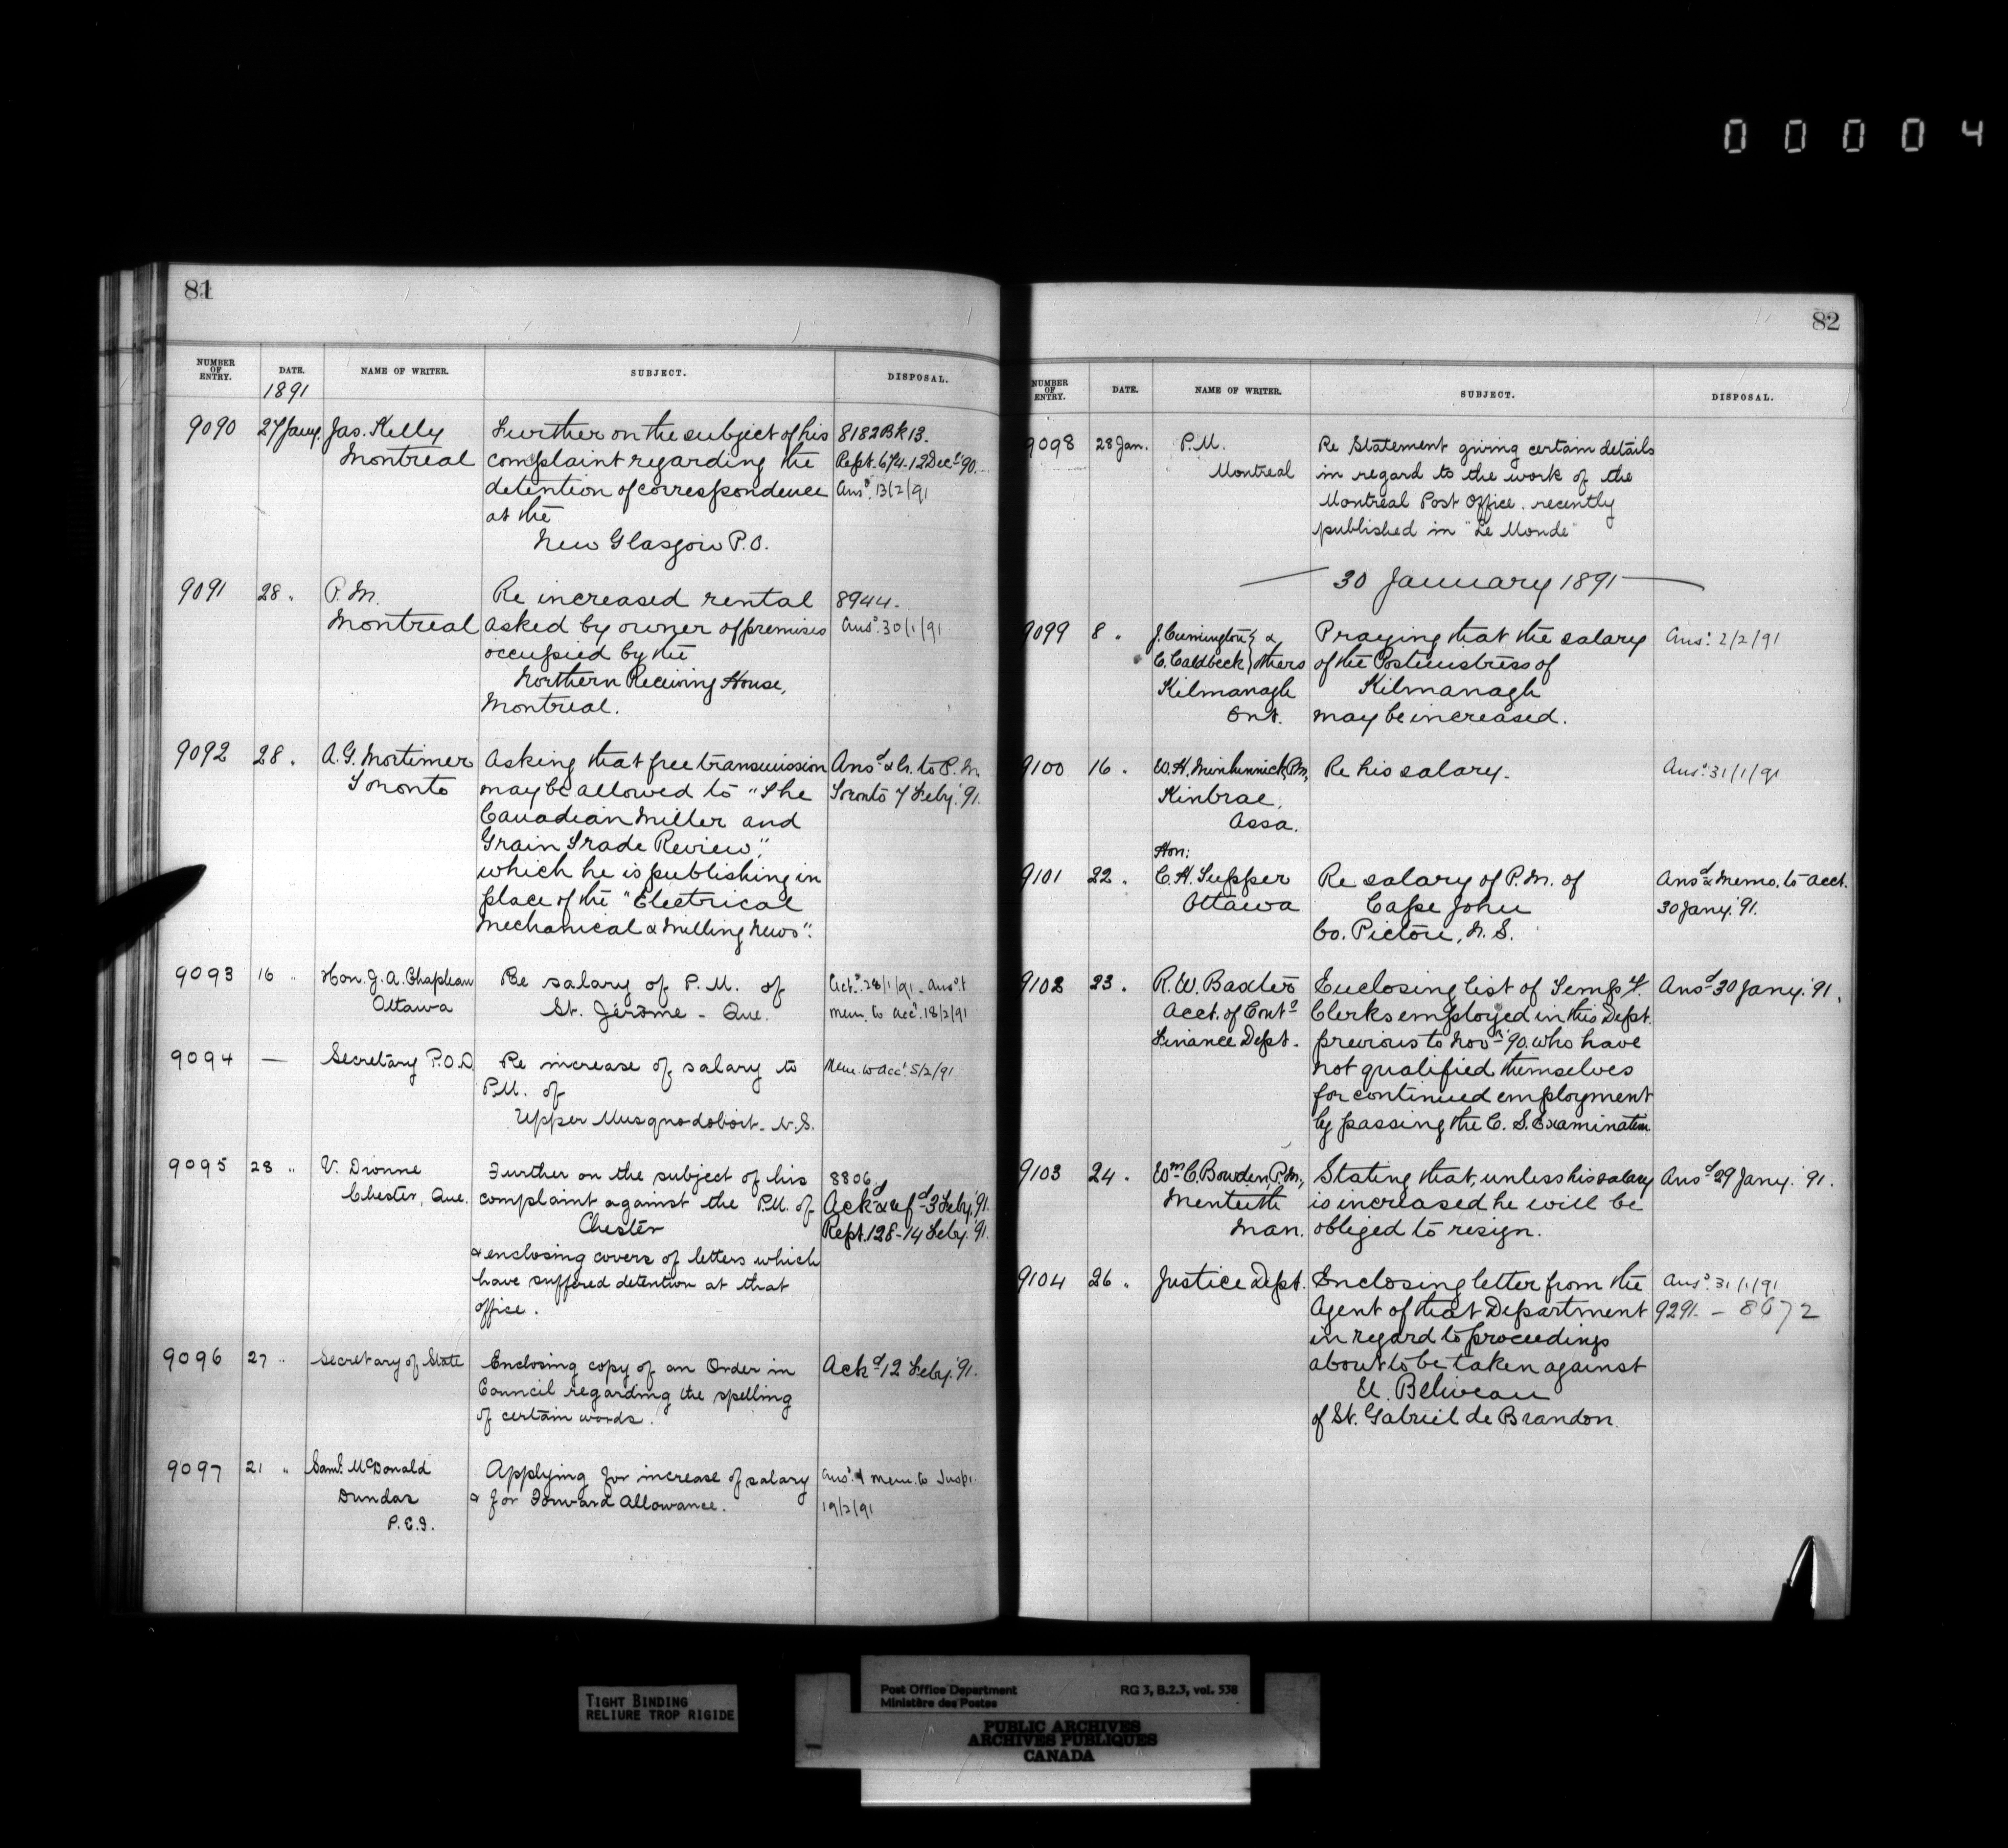 00004
81
NUMBER OF ENTRY. DATE. NAME OF WRITER. SUBJECT. DISPOSAL.
1891
9090 27 Jany. Jas. Kelly Further on the subject of his 8182 Bk 13.
Montreal complaint regarding the Rept. 674-12 Decr. '90.
detention of correspondence Ansd. 13/2/91
at the
New Glasgow P.O.
9091 28 " P.M. Re increased rental 8944.
Montreal asked by owner of premises Ansd. 30/1/91
occupied by the
Northern Receiving House,
Montreal.
9092 28 " A.G. Mortimer Asking that free transmission Ansd. & Cr. to P.M.
Toronto may be allowed to "The Toronto 7 Feby. '91.
Canadian Miller and
Grain Trade Review",
which he is publishing in
place of the "Electrical
Mechanical & Milling News".
9093 16 " Hon. J.A. Chapleau Re salary of P.M. of Ackd. 28/1/91 - Ansd. &
Ottawa St. Jérôme - Que. Mem. to Acct. 18/2/91
9094 — Secretary P.O.D. Re increase of salary to Mem. to Acct. 5/2/91
P.M. of
Upper Musquodoboit. N.S.
9095 28 " V. Dionne Further on the subject of his 8806
Chester, Que. complaint against the P.M. of Ackd. & refd. 3 Feby. '91.
Chester Rept. 128-14 Feby. '91.
& enclosing covers of letters which
have suffered detention at that
office.
9096 27 " Secretary of State Enclosing copy of an Order in Ackd. 12 Feby. '91.
Council regarding the spelling
of certain words.
9097 21 " Saml. McDonald Applying for increase of salary Ansd. & Mem. to Inspr.
Dundas & for Forward Allowance. 19/2/91
P.E.I.
82
NUMBER OF ENTRY. DATE. NAME OF WRITER. SUBJECT. DISPOSAL.
9098 28 Jan. P.M. Re Statement giving certain details
Montreal in regard to the work of the
Montreal Post Office. recently
published in "Le Monde"
— 30 January 1891 —
9099 8 " J. Cumington } & Praying that the salary Ansd. 2/2/91
C. Caldbeck } others of the Postmistress of
Kilmanagh Kilmanagh
Ont. may be increased.
9100 16 " W.H. Minhinnick, P.M., Re his salary. Ansd. 31/1/91
Kinbrae,
Assa.
Hon:
9101 22 " C.H. Tupper Re salary of P.M. of Ansd. & Memo. to Acct.
Ottawa Cape John 30 Jany. '91.
Co. Pictou, N.S.
9102 23 " R.W. Baxter Enclosing list of Tempy. Ansd. 30 Jany. '91.
Acct. of Contd. Clerks employed in this Dept.
Finance Dept. previous to Novr. '90. who have
not qualified themselves
for continued employment
by passing the C.S. Examination
9103 24 " Wm. C. Bowden, P.M., Stating that, unless his salary Ansd. 29 Jany. '91.
Menteith is increased he will be
Man. obliged to resign.
9104 26 " Justice Dept. Enclosing letter from the Ansd. 31/1/91
Agent of that Department 9291. - 8672
in regard to proceedings
about to be taken against
Beliveau
of St. Gabriel de Brandon.
TIGHT BINDING
RELIURE TROP RIGIDE
Post Office Department RG 3, B.2.3, vol. 538
Ministère des Postes
PUBLIC ARCHIVES
ARCHIVES PUBLIQUES
CANADA